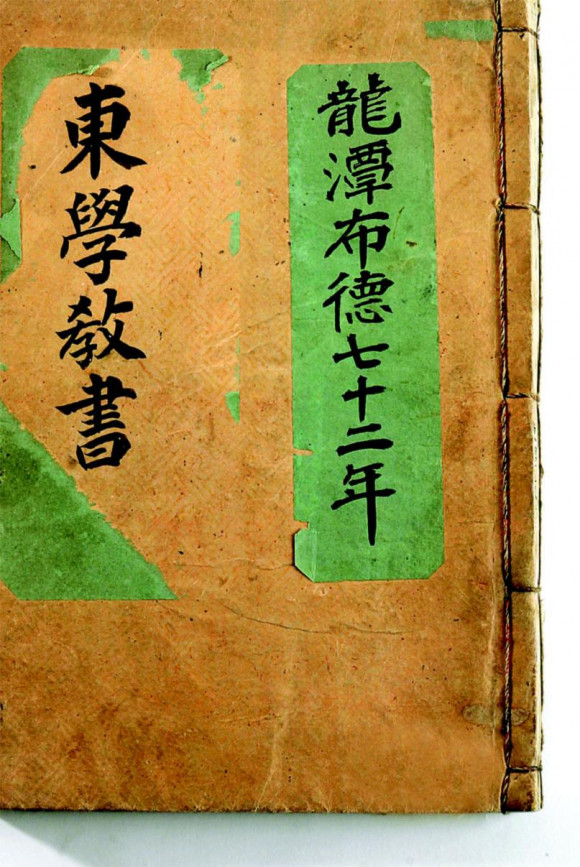 龍潭布德七十二年
東學敎書